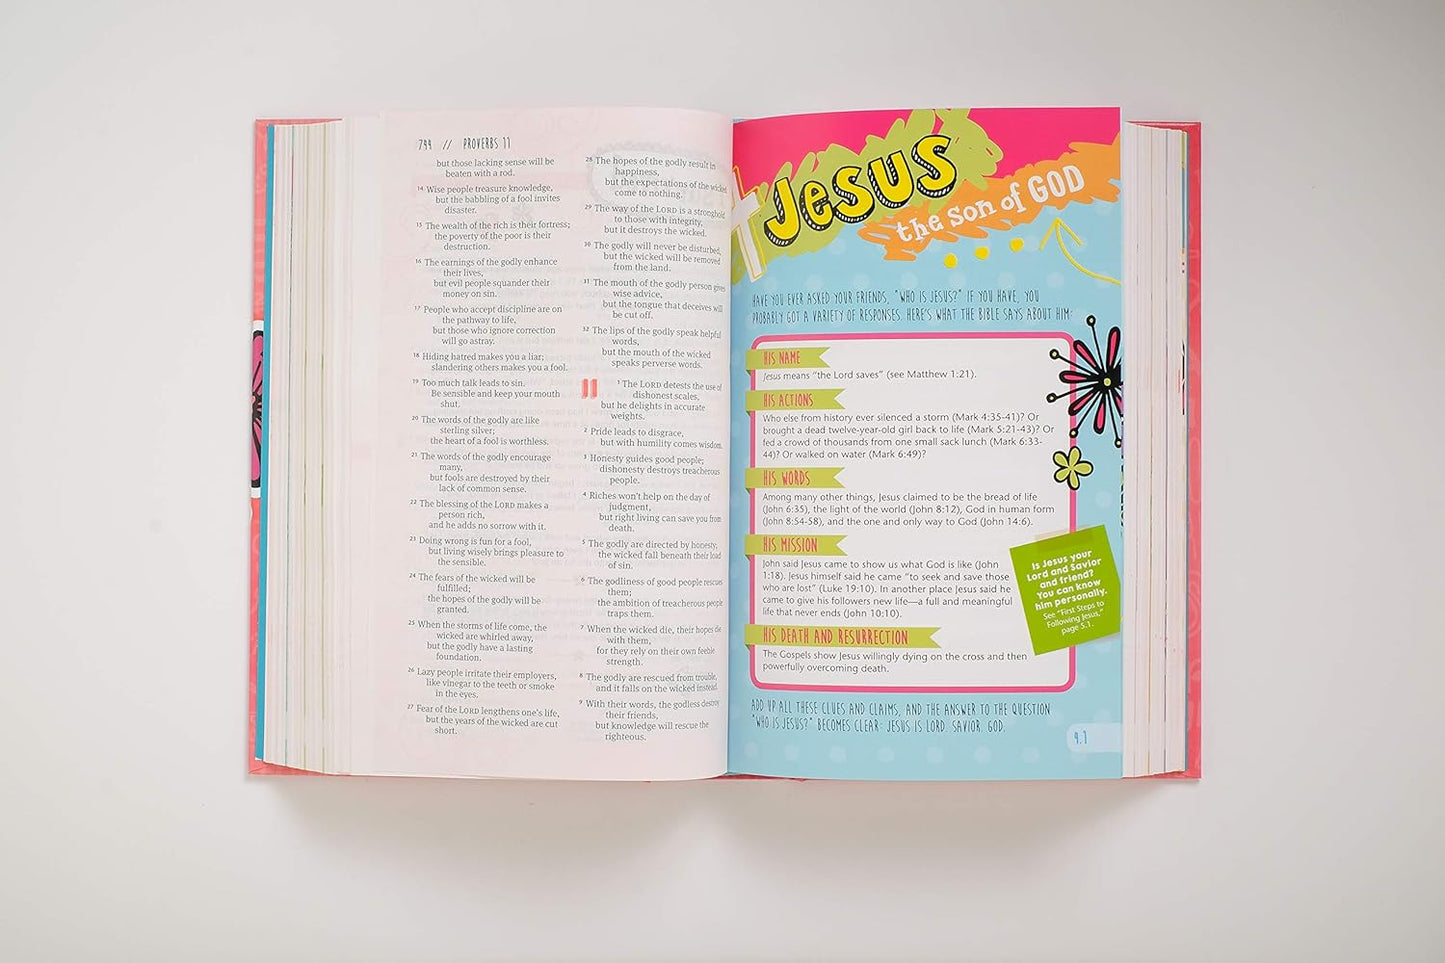 744 // PROVERBS 11
but those lacking sense will be
beaten with a rod.
14 Wise people treasure knowledge,
but the babbling of a fool invites
disaster.
15 The wealth of the rich is their fortress;
the poverty of the poor is their
destruction.
16 The earnings of the godly enhance
their lives,
but evil people squander their
money on sin.
17 People who accept discipline are on
the pathway to life,
but those who ignore correction
will go astray.
18 Hiding hatred makes you a liar;
slandering others makes you a fool.
19 Too much talk leads to sin.
Be sensible and keep your mouth
shut.
20 The words of the godly are like
sterling silver;
the heart of a fool is worthless.
21 The words of the godly encourage
many,
but fools are destroyed by their
lack of common sense.
22 The blessing of the LORD makes a
person rich,
and he adds no sorrow with it.
23 Doing wrong is fun for a fool,
but living wisely brings pleasure to
the sensible.
24 The fears of the wicked will be
fulfilled;
the hopes of the godly will be
granted.
25 When the storms of life come, the
wicked are whirled away,
but the godly have a lasting
foundation.
26 Lazy people irritate their employers,
like vinegar to the teeth or smoke
in the eyes.
27 Fear of the LORD lengthens one's life,
but the years of the wicked are cut
short.
28 The hopes of the godly result in
happiness,
but the expectations of the wicked
come to nothing.
29 The way of the LORD is a stronghold
to those with integrity,
but it destroys the wicked.
30 The godly will never be disturbed,
but the wicked will be removed
from the land.
31 The mouth of the godly person gives
wise advice,
but the tongue that deceives will
be cut off.
32 The lips of the godly speak helpful
words,
but the mouth of the wicked
speaks perverse words.
11 1 The LORD detests the use of
dishonest scales,
but he delights in accurate
weights.
2 Pride leads to disgrace,
but with humility comes wisdom.
3 Honesty guides good people;
dishonesty destroys treacherous
people.
4 Riches won't help on the day of
judgment,
but right living can save you from
death.
5 The godly are directed by honesty,
the wicked fall beneath their load
of sin.
6 The godliness of good people rescues
them;
the ambition of treacherous people
traps them.
7 When the wicked die, their hopes die
with them,
for they rely on their own feeble
strength.
8 The godly are rescued from trouble,
and it falls on the wicked instead.
9 With their words, the godless destroy
their friends,
but knowledge will rescue the
righteous.
Jesus
the son of GOD
HAVE YOU EVER ASKED YOUR FRIENDS, "WHO IS JESUS?" IF YOU HAVE, YOU
PROBABLY GOT A VARIETY OF RESPONSES. HERE'S WHAT THE BIBLE SAYS ABOUT HIM:
HIS NAME
Jesus means "the Lord saves" (see Matthew 1:21).
HIS ACTIONS
Who else from history ever silenced a storm (Mark 4:35-41)? Or
brought a dead twelve-year-old girl back to life (Mark 5:21-43)? Or
fed a crowd of thousands from one small sack lunch (Mark 6:33-
44)? Or walked on water (Mark 6:49)?
HIS WORDS
Among many other things, Jesus claimed to be the bread of life
(John 6:35), the light of the world (John 8:12), God in human form
(John 8:54-58), and the one and only way to God (John 14:6).
HIS MISSION
John said Jesus came to show us what God is like (John
1:18). Jesus himself said he came "to seek and save those
who are lost" (Luke 19:10). In another place Jesus said he
came to give his followers new life—a full and meaningful
life that never ends (John 10:10).
HIS DEATH AND RESURRECTION
The Gospels show Jesus willingly dying on the cross and then
powerfully overcoming death.
Is Jesus your
Lord and Savior
and friend?
You can know
him personally.
See "First Steps to
Following Jesus,"
page 5.1.
ADD UP ALL THESE CLUES AND CLAIMS, AND THE ANSWER TO THE QUESTION
"WHO IS JESUS?" BECOMES CLEAR: JESUS IS LORD. SAVIOR. GOD.
9.1